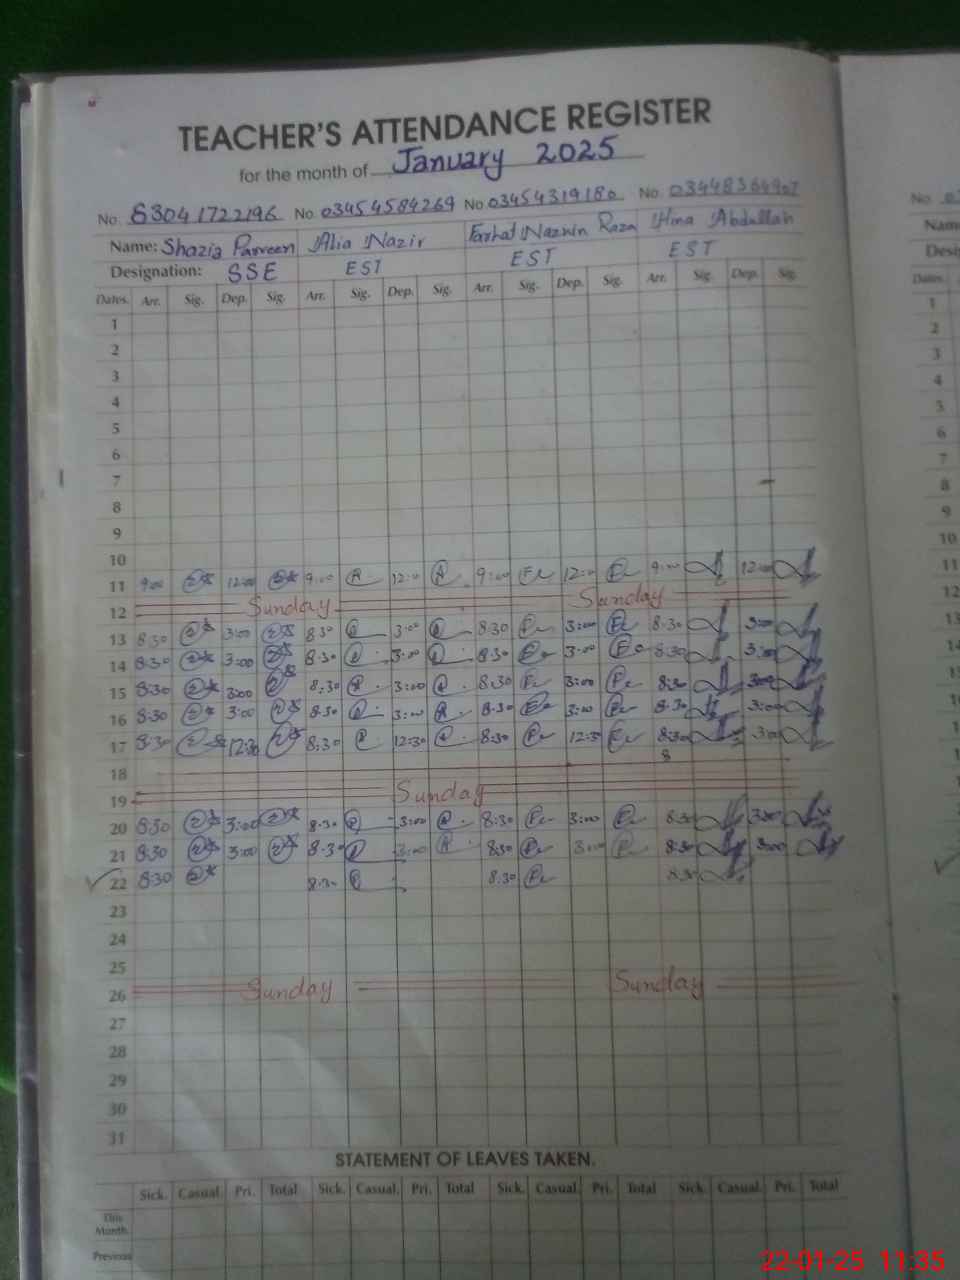 TEACHER'S ATTENDANCE REGISTER
for the month of January 2025
No. 63041722196 No. 03454584269 No 03454319180 No. 03448364907
Name: Shazia Parveen Alia Nazir Farhat Naznin Raza Hina Abdullah
Designation: SSE EST EST EST
Dates. Arr. Sig. Dep. Sig. Arr. Sig. Dep. Sig. Arr. Sig. Dep. Sig. Arr. Sig. Dep. Sig.
1
2
3
4
5
6
7
8
9
10
11 9:00 12:00 9:00 12:00 9:00 12:00 9:00 12:00
12 Sunday Sunday
13 8:30 3:00 8:30 3:00 8:30 3:00 8:30 3:00
14 8:30 3:00 8:30 3:00 8:30 3:00 8:30 3:00
15 8:30 3:00 8:30 3:00 8:30 3:00 8:30 3:00
16 8:30 3:00 8:30 3:00 8:30 3:00 8:30 3:00
17 8:30 12:30 8:30 12:30 8:30 12:30 8:30 3:00
8
18
19 Sunday
20 8:30 3:00 8:30 3:00 8:30 3:00 8:30 3:00
21 8:30 3:00 8:30 3:00 8:30 3:00 8:30 3:00
22 8:30 8:30 8:30 8:30
23
24
25
26 Sunday Sunday
27
28
29
30
31
STATEMENT OF LEAVES TAKEN.
Sick. Casual. Pri. Total Sick. Casual. Pri. Total Sick. Casual. Pri. Total Sick. Casual. Pri. Total
This Month.
Previous
22-01-25 11:35